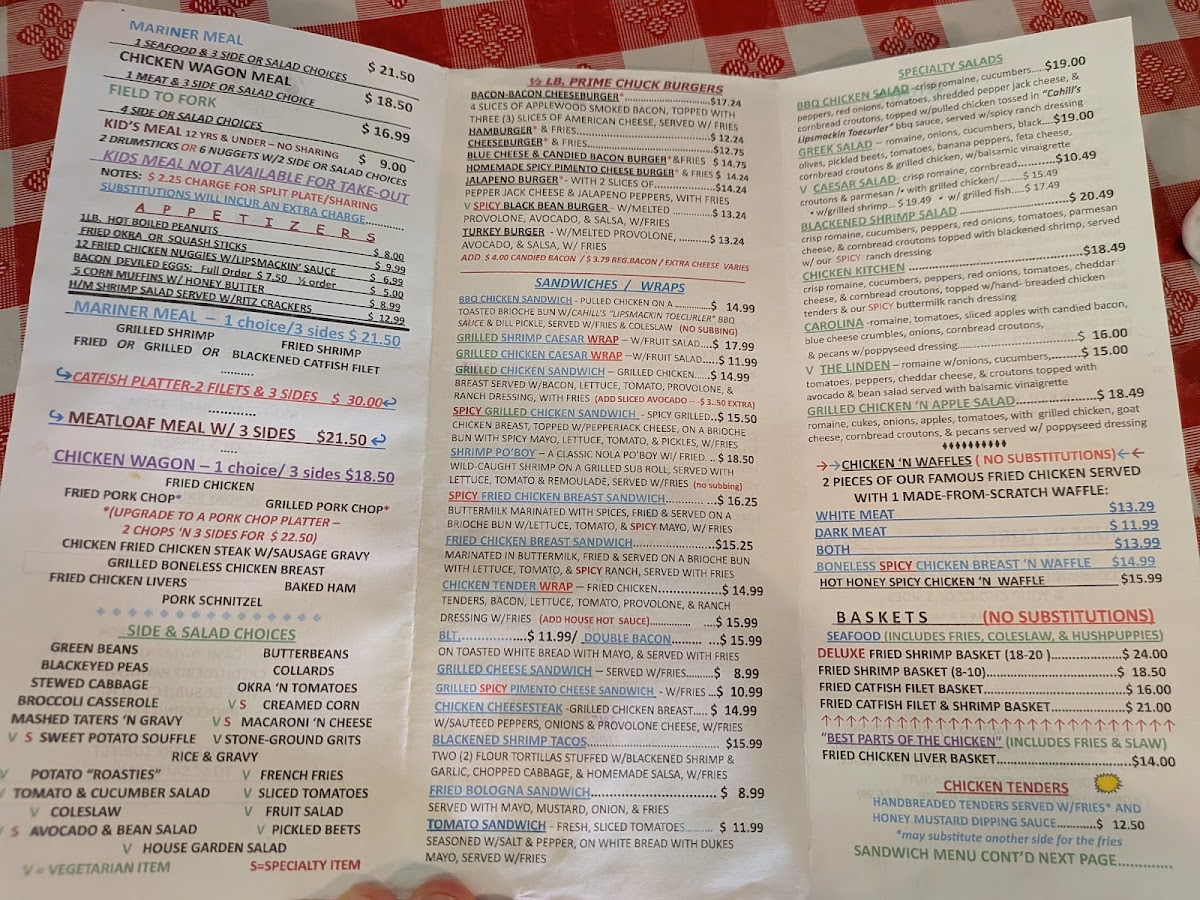 MARINER MEAL
1 SEAFOOD & 3 SIDE OR SALAD CHOICES $ 21.50
CHICKEN WAGON MEAL
1 MEAT & 3 SIDE OR SALAD CHOICE $ 18.50
FIELD TO FORK
4 SIDE OR SALAD CHOICES $ 16.99
KID'S MEAL 12 YRS & UNDER – NO SHARING $ 9.00
2 DRUMSTICKS OR 6 NUGGETS W/2 SIDE OR SALAD CHOICES
KIDS MEAL NOT AVAILABLE FOR TAKE-OUT
NOTES: $ 2.25 CHARGE FOR SPLIT PLATE/SHARING
SUBSTITUTIONS WILL INCUR AN EXTRA CHARGE............
A P P E T I Z E R S
1LB. HOT BOILED PEANUTS $ 8.00
FRIED OKRA OR SQUASH STICKS $ 9.99
12 FRIED CHICKEN NUGGIES W/LIPSMACKIN' SAUCE $ 6.99
BACON DEVILED EGGS: Full Order $ 7.50 ½ order $ 5.00
5 CORN MUFFINS W/ HONEY BUTTER $ 8.99
H/M SHRIMP SALAD SERVED W/RITZ CRACKERS $ 12.99
MARINER MEAL – 1 choice/3 sides $ 21.50
GRILLED SHRIMP FRIED SHRIMP
FRIED OR GRILLED OR BLACKENED CATFISH FILET
..........
CATFISH PLATTER-2 FILETS & 3 SIDES $ 30.00
............
MEATLOAF MEAL W/ 3 SIDES $21.50
.....
CHICKEN WAGON – 1 choice/ 3 sides $18.50
FRIED CHICKEN
FRIED PORK CHOP* GRILLED PORK CHOP*
*(UPGRADE TO A PORK CHOP PLATTER –
2 CHOPS 'N 3 SIDES FOR $ 22.50)
CHICKEN FRIED CHICKEN STEAK W/SAUSAGE GRAVY
GRILLED BONELESS CHICKEN BREAST
FRIED CHICKEN LIVERS BAKED HAM
PORK SCHNITZEL
SIDE & SALAD CHOICES
GREEN BEANS BUTTERBEANS
BLACKEYED PEAS COLLARDS
STEWED CABBAGE OKRA 'N TOMATOES
BROCCOLI CASSEROLE V S CREAMED CORN
MASHED TATERS 'N GRAVY V S MACARONI 'N CHEESE
V S SWEET POTATO SOUFFLE V STONE-GROUND GRITS
RICE & GRAVY
V POTATO "ROASTIES" V FRENCH FRIES
V TOMATO & CUCUMBER SALAD V SLICED TOMATOES
V COLESLAW V FRUIT SALAD
S AVOCADO & BEAN SALAD V PICKLED BEETS
V HOUSE GARDEN SALAD
V = VEGETARIAN ITEM S=SPECIALTY ITEM
½ LB. PRIME CHUCK BURGERS
BACON-BACON CHEESEBURGER*......................$17.24
4 SLICES OF APPLEWOOD SMOKED BACON, TOPPED WITH
THREE (3) SLICES OF AMERICAN CHEESE, SERVED W/ FRIES
HAMBURGER* & FRIES............................$ 12.24
CHEESEBURGER* & FRIES.........................$12.75
BLUE CHEESE & CANDIED BACON BURGER*&FRIES $ 14.75
HOMEMADE SPICY PIMENTO CHEESE BURGER & FRIES $ 14.24
JALAPENO BURGER* - WITH 2 SLICES OF..................$14.24
PEPPER JACK CHEESE & JALAPENO PEPPERS, WITH FRIES
V SPICY BLACK BEAN BURGER - W/MELTED ..........$ 13.24
PROVOLONE, AVOCADO, & SALSA, W/FRIES
TURKEY BURGER - W/MELTED PROVOLONE, ..........$ 13.24
AVOCADO, & SALSA, W/ FRIES
ADD $ 4.00 CANDIED BACON / $ 3.79 REG.BACON / EXTRA CHEESE VARIES
SANDWICHES / WRAPS
BBQ CHICKEN SANDWICH - PULLED CHICKEN ON A ............$ 14.99
TOASTED BRIOCHE BUN W/CAHILL'S "LIPSMACKIN TOECURLER" BBQ
SAUCE & DILL PICKLE, SERVED W/FRIES & COLESLAW (NO SUBBING)
GRILLED SHRIMP CAESAR WRAP – W/FRUIT SALAD....$ 17.99
GRILLED CHICKEN CAESAR WRAP –W/FRUIT SALAD....$ 11.99
GRILLED CHICKEN SANDWICH - GRILLED CHICKEN.....$ 14.99
BREAST SERVED W/BACON, LETTUCE, TOMATO, PROVOLONE, &
RANCH DRESSING, WITH FRIES (ADD SLICED AVOCADO -- $ 3..50 EXTRA)
SPICY GRILLED CHICKEN SANDWICH - SPICY GRILLED..$ 15.50
CHICKEN BREAST, TOPPED W/PEPPERJACK CHEESE, ON A BRIOCHE
BUN WITH SPICY MAYO, LETTUCE, TOMATO, & PICKLES, W/FRIES
SHRIMP PO'BOY – A CLASSIC NOLA PO'BOY W/ FRIED. .. $ 18.50
WILD-CAUGHT SHRIMP ON A GRILLED SUB ROLL, SERVED WITH
LETTUCE, TOMATO & REMOULADE, SERVED W/FRIES (no subbing)
SPICY FRIED CHICKEN BREAST SANDWICH................$ 16.25
BUTTERMILK MARINATED WITH SPICES, FRIED & SERVED ON A
BRIOCHE BUN W/LETTUCE, TOMATO, & SPICY MAYO, W/ FRIES
FRIED CHICKEN BREAST SANDWICH...................$15.25
MARINATED IN BUTTERMILK, FRIED & SERVED ON A BRIOCHE BUN
WITH LETTUCE, TOMATO, & SPICY RANCH, SERVED WITH FRIES
CHICKEN TENDER WRAP – FRIED CHICKEN...............$ 14.99
TENDERS, BACON, LETTUCE, TOMATO, PROVOLONE, & RANCH
DRESSING W/FRIES (ADD HOUSE HOT SAUCE)............... $15.99
BLT...............$ 11.99/ DOUBLE BACON.......$15.99
ON TOASTED WHITE BREAD WITH MAYO, & SERVED WITH FRIES
GRILLED CHEESE SANDWICH – SERVED W/FRIES.......$ 8.99
GRILLED SPICY PIMENTO CHEESE SANDWICH - W/FRIES...$ 10.99
CHICKEN CHEESESTEAK -GRILLED CHICKEN BREAST..... $ 14.99
W/SAUTEED PEPPERS, ONIONS & PROVOLONE CHEESE, W/FRIES
BLACKENED SHRIMP TACOS............................$15.99
TWO (2) FLOUR TORTILLAS STUFFED W/BLACKENED SHRIMP &
GARLIC, CHOPPED CABBAGE, & HOMEMADE SALSA, W/FRIES
FRIED BOLOGNA SANDWICH...........................$ 8.99
SERVED WITH MAYO, MUSTARD, ONION, & FRIES
TOMATO SANDWICH - FRESH, SLICED TOMATOES.......... $ 11.99
SEASONED W/SALT & PEPPER, ON WHITE BREAD WITH DUKES
MAYO, SERVED W/FRIES
SPECIALTY SALADS
BBQ CHICKEN SALAD -crisp romaine, cucumbers....$19.00
peppers, red onions, tomatoes, shredded pepper jack cheese, &
cornbread croutons, topped w/pulled chicken tossed in "Cahill's
Lipsmackin Toecurler" bbq sauce, served w/spicy ranch dressing
GREEK SALAD – romaine, onions, cucumbers, black....$19.00
olives, pickled beets, tomatoes, banana peppers, feta cheese,
cornbread croutons & grilled chicken, w/balsamic vinaigrette
V CAESAR SALAD- crisp romaine, cornbread.............$10.49
croutons & parmesan /• with grilled chicken/........$ 15.49
• w/grilled shrimp... $ 19.49 • w/ grilled fish.....$ 17.49
BLACKENED SHRIMP SALAD ......................... $ 20.49
crisp romaine, cucumbers, peppers, red onions, tomatoes, parmesan
cheese, & cornbread croutons topped with blackened shrimp, served
w/ our SPICY ranch dressing
CHICKEN KITCHEN .................................$18.49
crisp romaine, cucumbers, peppers, red onions, tomatoes, cheddar
cheese, & cornbread croutons, topped w/hand- breaded chicken
tenders & our SPICY buttermilk ranch dressing
CAROLINA -romaine, tomatoes, sliced apples with candied bacon,
blue cheese crumbles, onions, cornbread croutons,
& pecans w/poppyseed dressing.........................$ 16.00
V THE LINDEN – romaine w/onions, cucumbers,.......$ 15.00
tomatoes, peppers, cheddar cheese, & croutons topped with
avocado & bean salad served with balsamic vinaigrette
GRILLED CHICKEN 'N APPLE SALAD...................$ 18.49
romaine, cukes, onions, apples, tomatoes, with grilled chicken, goat
cheese, cornbread croutons, & pecans served w/ poppyseed dressing
→→CHICKEN 'N WAFFLES ( NO SUBSTITUTIONS)←←
2 PIECES OF OUR FAMOUS FRIED CHICKEN SERVED
WITH 1 MADE-FROM-SCRATCH WAFFLE:
WHITE MEAT $13.29
DARK MEAT $ 11.99
BOTH $13.99
BONELESS SPICY CHICKEN BREAST 'N WAFFLE $14.99
HOT HONEY SPICY CHICKEN 'N WAFFLE $15.99
B A S K E T S (NO SUBSTITUTIONS)
SEAFOOD (INCLUDES FRIES, COLESLAW, & HUSHPUPPIES)
DELUXE FRIED SHRIMP BASKET (18-20 )..............$ 24.00
FRIED SHRIMP BASKET (8-10)..........................$ 18.50
FRIED CATFISH FILET BASKET..........................$ 16.00
FRIED CATFISH FILET & SHRIMP BASKET..............$ 21.00
↑↑↑↑↑↑↑↑↑↑↑↑↑↑↑↑↑↑↑↑↑↑↑↑↑↑↑↑
"BEST PARTS OF THE CHICKEN" (INCLUDES FRIES & SLAW)
FRIED CHICKEN LIVER BASKET.........................$14.00
CHICKEN TENDERS
HANDBREADED TENDERS SERVED W/FRIES* AND
HONEY MUSTARD DIPPING SAUCE...........$ 12.50
*may substitute another side for the fries
SANDWICH MENU CONT'D NEXT PAGE.............